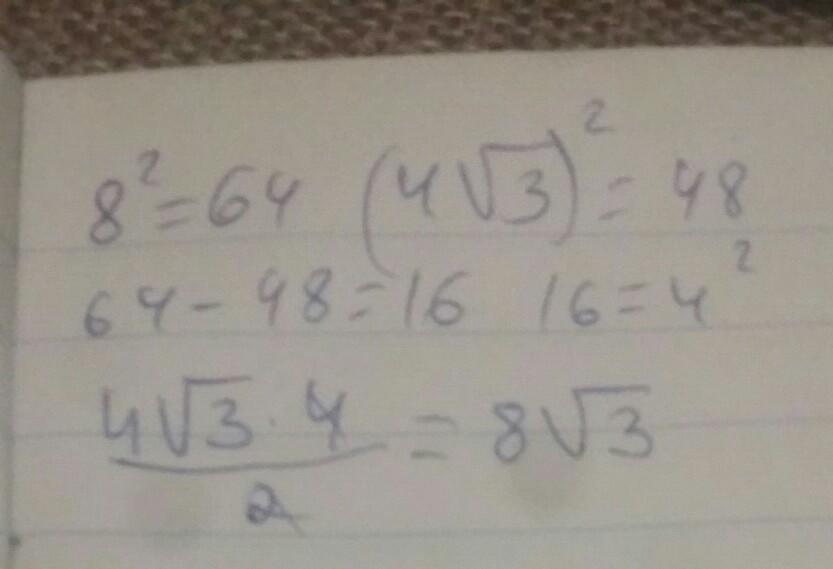 8² = 64 (4√3)² = 48
64 - 48 = 16 16 = 4²
4√3 · 4 / 2 = 8√3